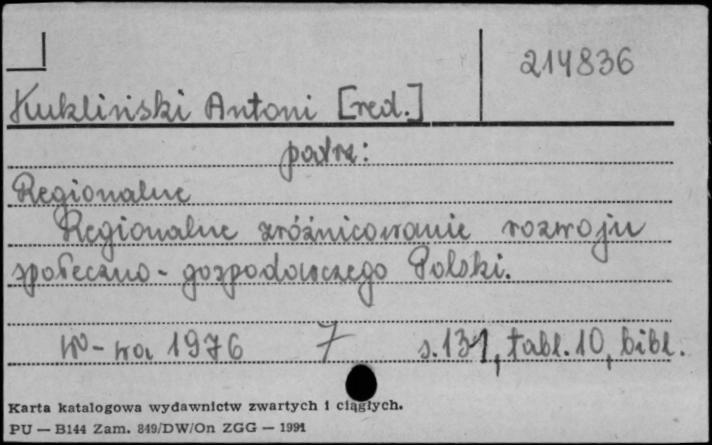 214836
Kukliński Antoni [red.]
patrz:
Regionalne
Regionalne zróżnicowanie rozwoju
społeczno-gospodarczego Polski.
W-wa 1976 7 s.131, tabl.10, bibl.
Karta katalogowa wydawnictw zwartych i ciągłych.
PU — B144 Zam. 849/DW/On ZGG — 1991